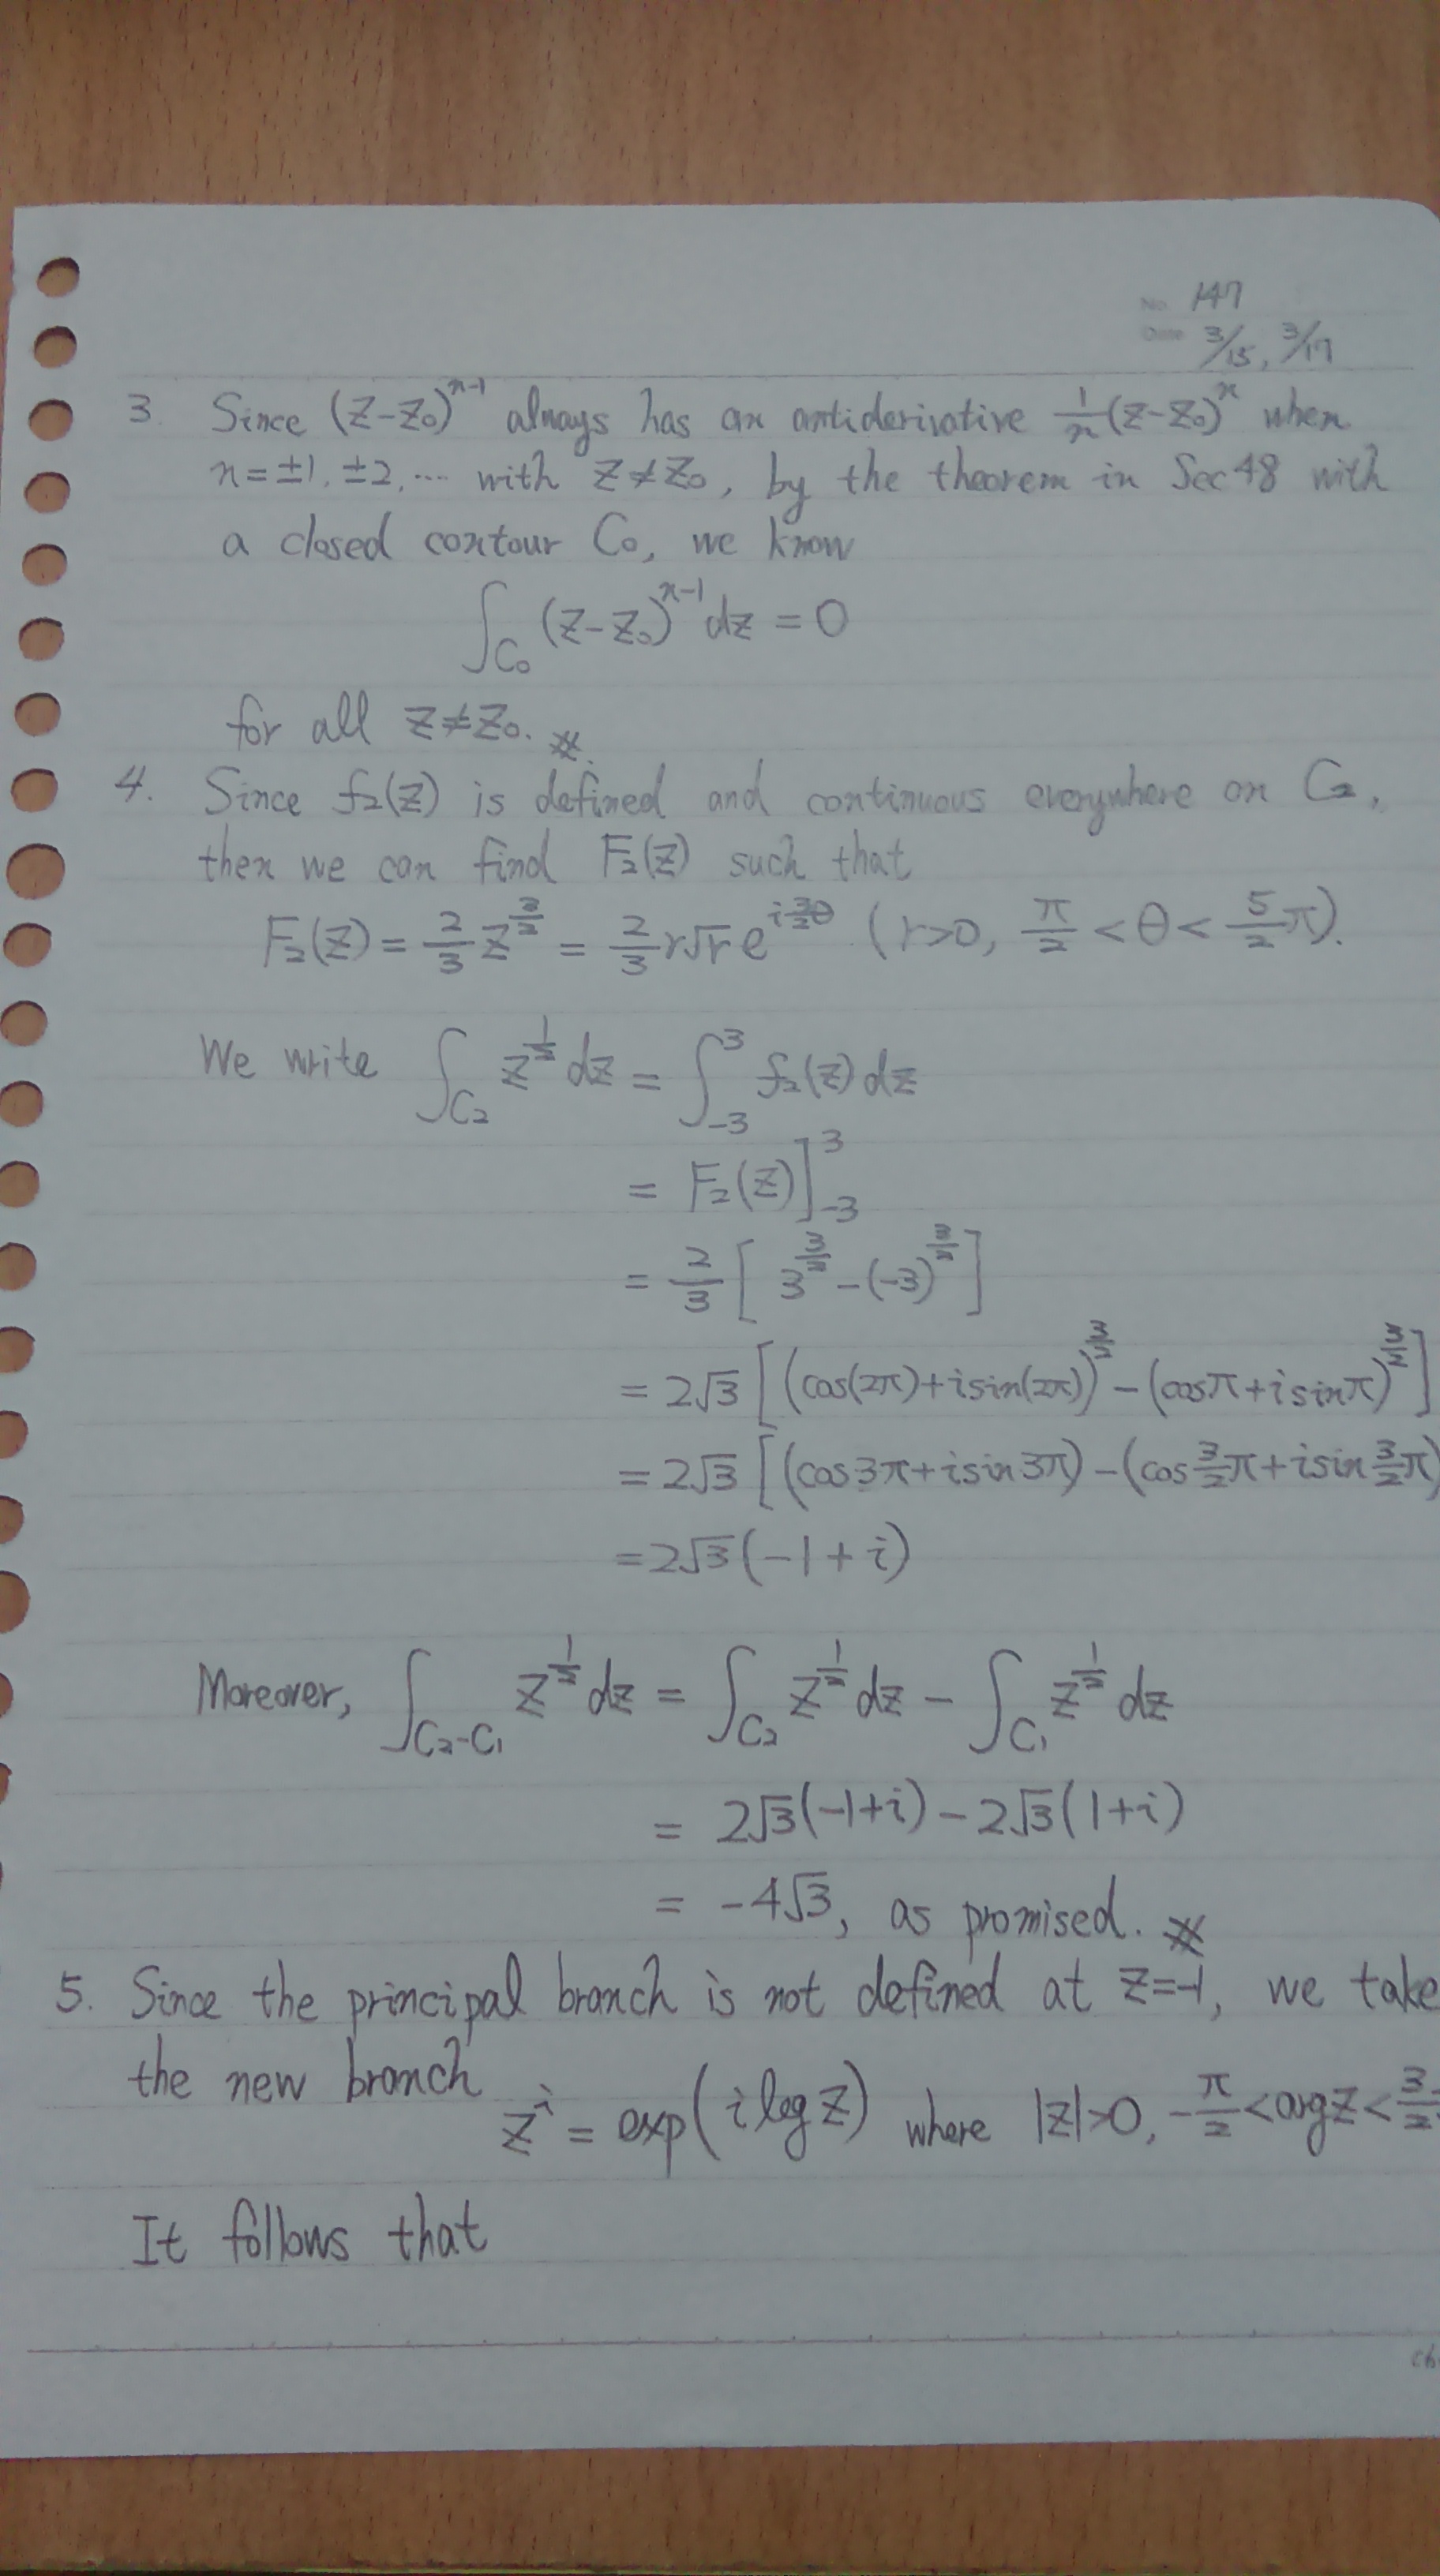 No. 147
Date 3/15, 3/17
3. Since (z-z₀)ⁿ⁻¹ always has an antiderivative 1/n (z-z₀)ⁿ when
n=±1, ±2, ... with z≠z₀, by the theorem in Sec 48 with
a closed contour C₀, we know
∫_C₀ (z-z₀)ⁿ⁻¹ dz = 0
for all z≠z₀. ※
4. Since f₂(z) is defined and continuous everywhere on C₂,
then we can find F₂(z) such that
F₂(z) = 2/3 z^(3/2) = 2/3 r√r e^(i 3/2 θ) (r>0, π/2 < θ < 5/2 π).
We write ∫_C₂ z^(1/2) dz = ∫_-3^3 f₂(z) dz
= F₂(z)]_-3^3
= 2/3 [ 3^(3/2) - (-3)^(3/2) ]
= 2√3 [ (cos(2π)+i sin(2π))^(3/2) - (cosπ+i sinπ)^(3/2) ]
= 2√3 [ (cos3π+i sin3π) - (cos 3/2 π+i sin 3/2 π)
= 2√3 (-1+i)
Moreover, ∫_C₂-C₁ z^(1/2) dz = ∫_C₂ z^(1/2) dz - ∫_C₁ z^(1/2) dz
= 2√3(-1+i) - 2√3(1+i)
= -4√3, as promised. ※
5. Since the principal branch is not defined at z=-1, we take
the new branch
z^i = exp(i log z) where |z|>0, -π/2 < arg z < 3/2
It follows that